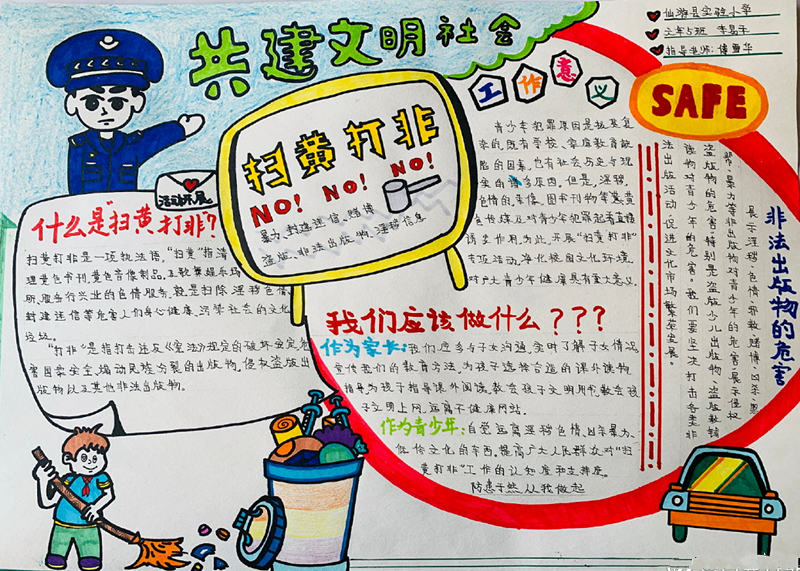 共建文明社会
仙游县实验小学
指导老师:
工作意义
SAFE
扫黄打非
NO! NO! NO!
暴力、封建迷信、赌博
盗版、非法出版物、淫秽信息
活动开展
什么是"扫黄打非"?
扫黄打非是一项执法语,"扫黄"指清
理黄色书刊黄色音像制品,及歌舞娱乐场
所、服务行业的色情服务,就是扫除淫秽色情、
封建迷信等危害人们身心健康、污染社会的文化
垃圾。
"打非"是指打击违反《宪法》规定的破坏安定,危
害国家安全、煽动民族分裂的出版物,侵权盗版出
版物以及其他非法出版物。
青少年犯罪原因是极其复
杂的,既有学校、家庭教育缺
陷的因素,也有社会历史与现
实的诸多原因,但是,淫秽、
色情的音像、图书刊物等宣黄
色传媒及对青少年犯罪起着直
诱发作用,为此,开展"扫黄打非"
专项活动,净化校园文化环境
对广大青少年健康具有重大意义。
我们应该做什么???
作为家长:我们应多与子女沟通,实时了解子女情况
宣传我们的教育方法,为孩子选择合适的课外读物、
指导为孩子指导课外阅读,教会孩子文明用书,教会孩
子文明上网,远离不健康网站。
作为青少年:自觉远离淫秽色情、凶杀暴力、
低俗文化的东西,提高广大人民群众对"扫
黄打非"工作的认知度和支持度。
防患于然,从我做起
非法出版物的危害
展示淫秽、色情、邪教、赌博、凶杀、黑
帮、暴力等非出版物对青少年的危害,展示侵权
盗版物的危害,特别是盗版少儿出版物、盗版教辅
读物对青少年的危害。我们要坚决打击各类非
法出版活动,促进文化市场繁荣发展。